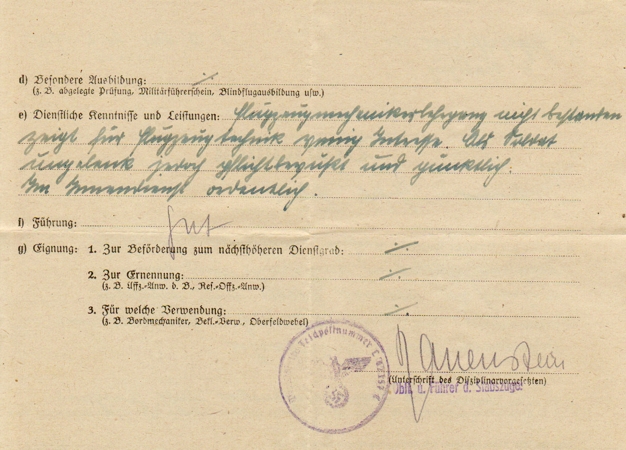 d) Besondere Ausbildung: ·/·
(z. B. abgelegte Prüfung, Militärführerschein, Blindflugausbildung usw.)
e) Dienstliche Kenntnisse und Leistungen: Flugzeugmechanikerlehrgang nicht bestanden
zeigt für Flugzeugtechnik wenig Interesse. Als Soldat
ungelenk jedoch pflichtbewußt und pünktlich.
Im Innendienst ordentlich.
f) Führung: gut
g) Eignung: 1. Zur Beförderung zum nächsthöheren Dienstgrad: ·/·
2. Zur Ernennung: ·/·
(z. B. Uffz.-Anw. d. B., Res.-Offz.-Anw.)
3. Für welche Verwendung: ·/·
(z. B. Bordmechaniker, Bekl.-Verw., Oberfeldwebel)
Feldpostnummer
(Unterschrift des Disziplinarvorgesetzten)
u. Führer d. Stabszuges